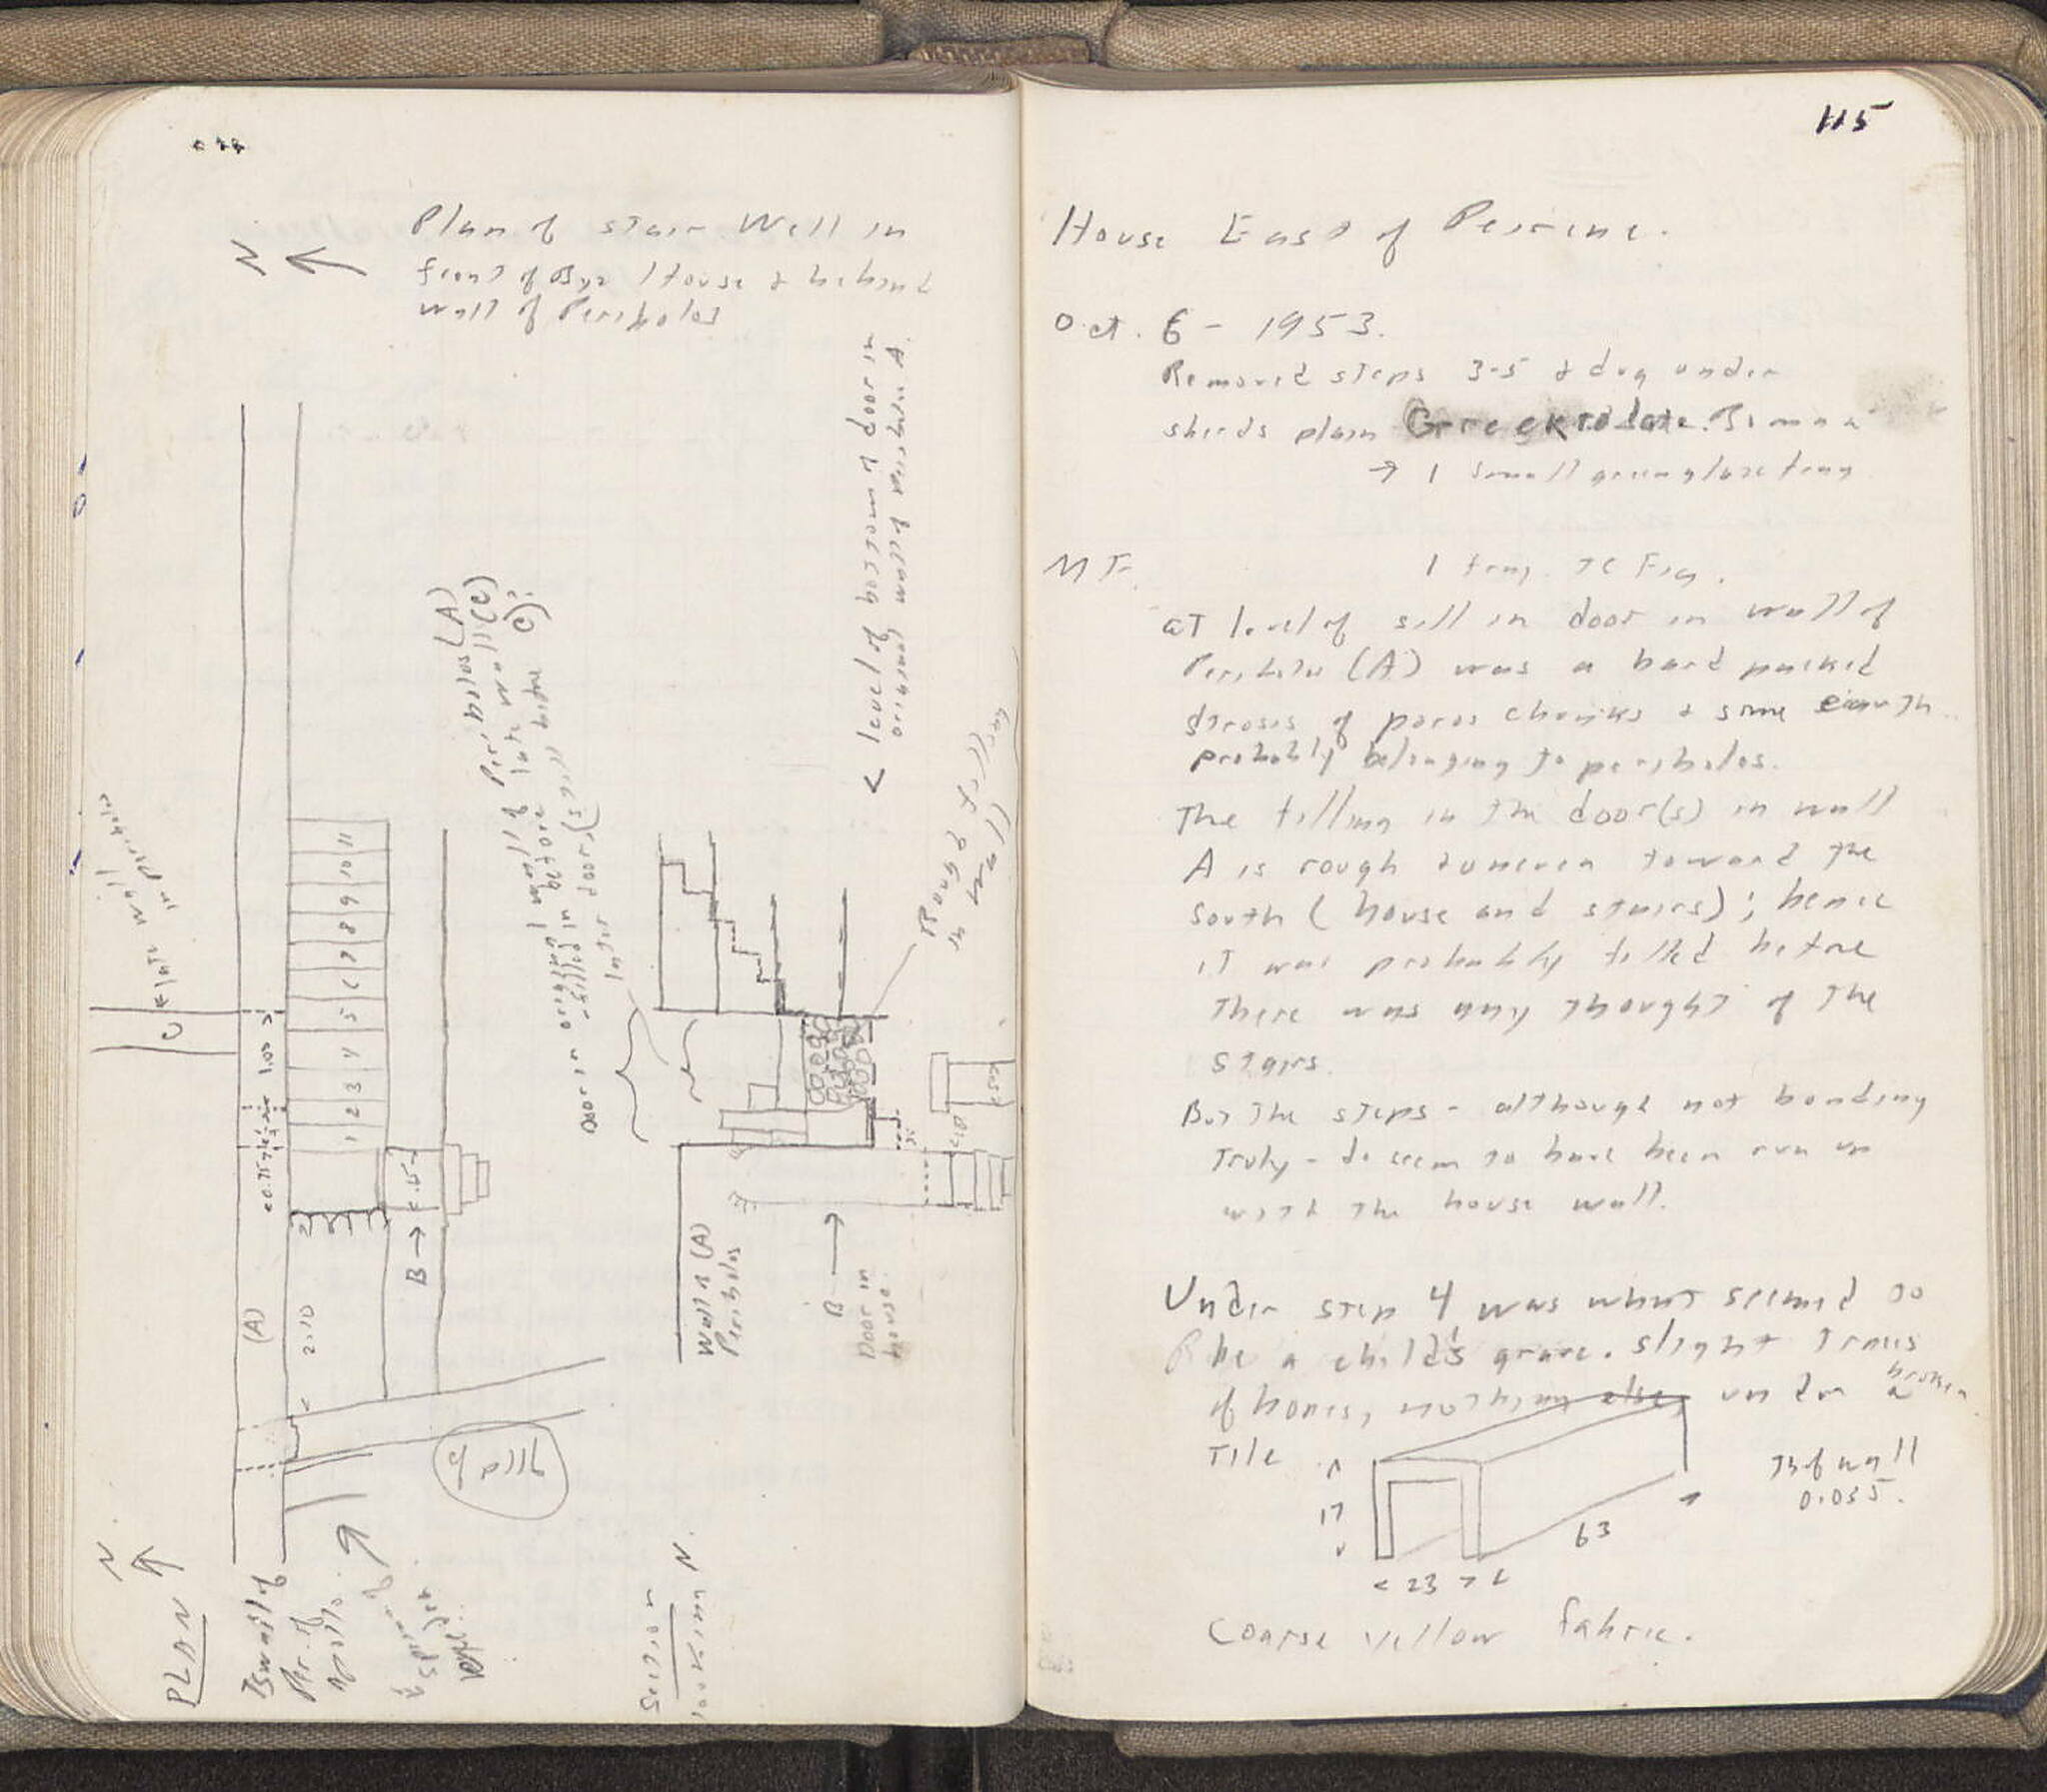 Plan of stair Well in
front of Byz House & behind
wall of Peribolos
N
< level of bottom of door in
original wall of Peribolos A.
late wall
in peribolos
C
Door in original wall of Peribolos (A)
filled in before late wall (C)
later door
1 2 3 4 5 6 7 8 9 10 11
1.00
(A)
2.10
B →
Rough
in wall
Wall (A)
Peribolos
B →
Door in
house.
PLAN
N
Per. of
Apollo.
Section
looking N.
115
House East of Peirene.
Oct. 6 - 1953.
Removed steps 3-5 & dug under
sherds plain Greek to late Roman
→ 1 small green glaze frag
MF. 1 frag. TC Fig.
at level of sill in door in wall of
Peribolos (A) was a hard packed
strosis of poros chunks & some earth
probably belonging to peribolos.
The filling in the door(s) in wall
A is rough & uneven toward the
south (house and stairs); hence
it was probably filled before
there was any thought of the
stairs.
But the steps - although not bonding
truly - do seem to have been run up
with the house wall.
Under step 4 was what seemed to
be a child's grave. Slight traces
of bones, nothing else, under a broken
Tile
17
23
63
Th of wall
0.035.
Coarse yellow fabric.